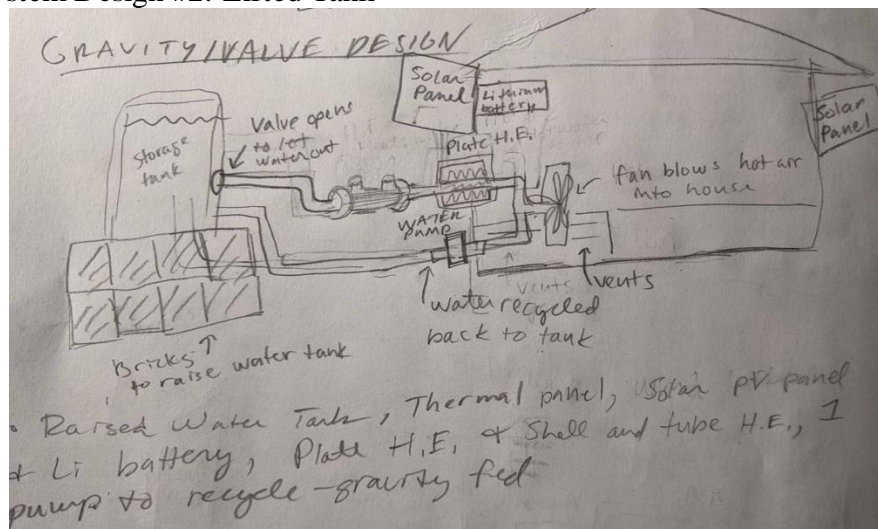 GRAVITY/VALVE DESIGN
Solar
Panel
Lithium
battery
Solar
Panel
Valve opens
to let
water out
Storage
tank
Plate H.E.
fan blows hot air
into house
WATER
PUMP
vents
vents
water recycled
back to tank
Bricks
to raise water tank
• Raised Water Tank, Thermal panel, Solar pv panel
+ Li battery, Plate H.E. & Shell and tube H.E., 1
pump to recycle - gravity fed